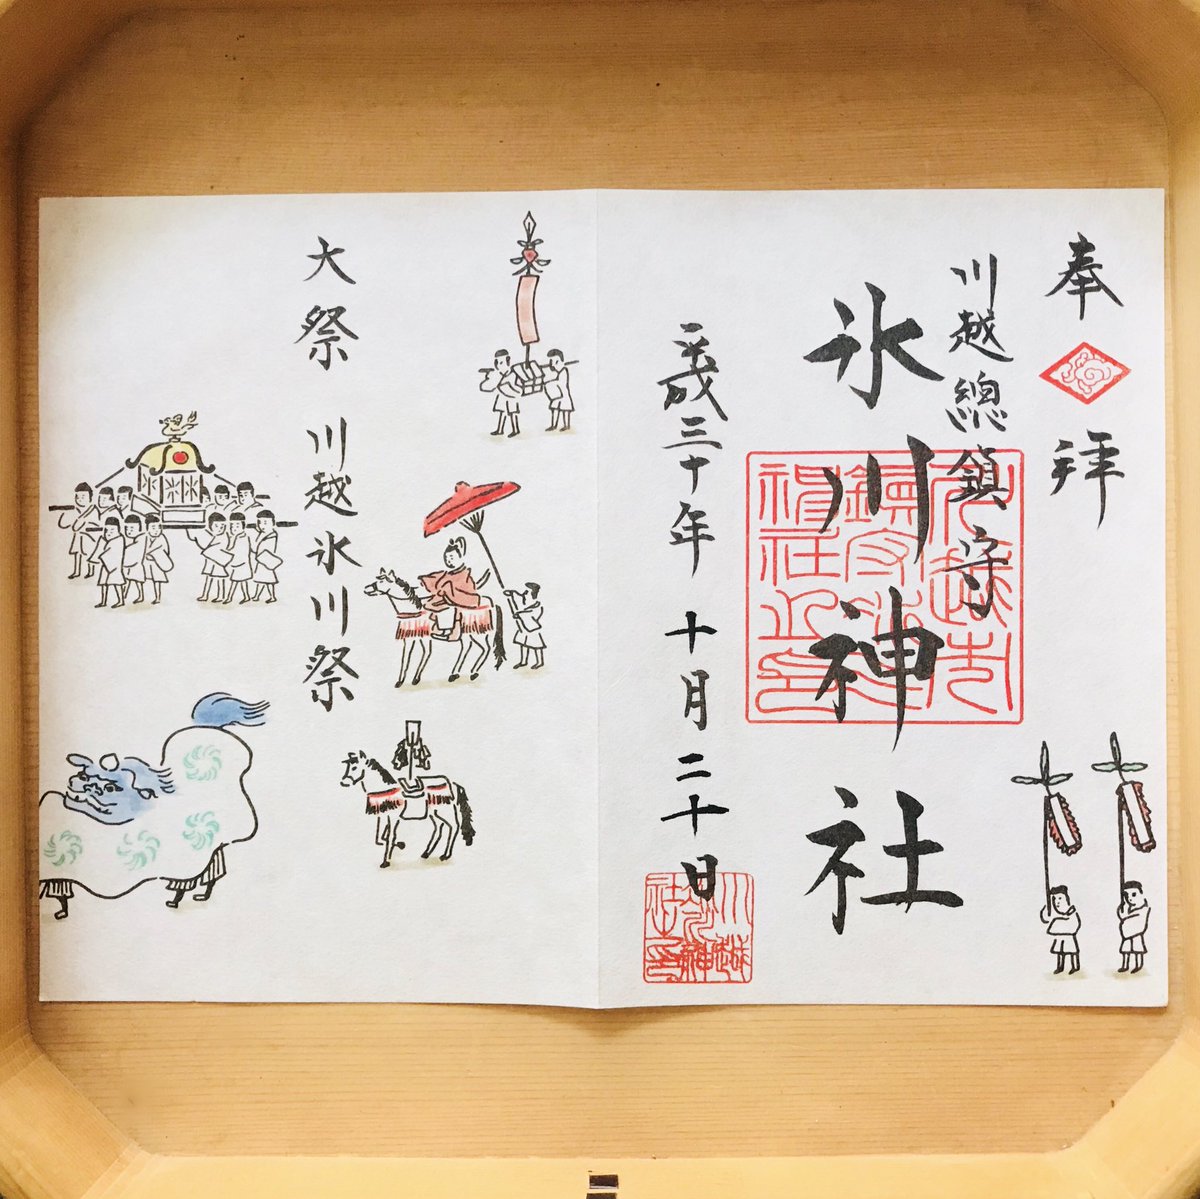 奉拝
川越總鎮守
氷川神社
平成三十年 十月二十日
大祭 川越氷川祭